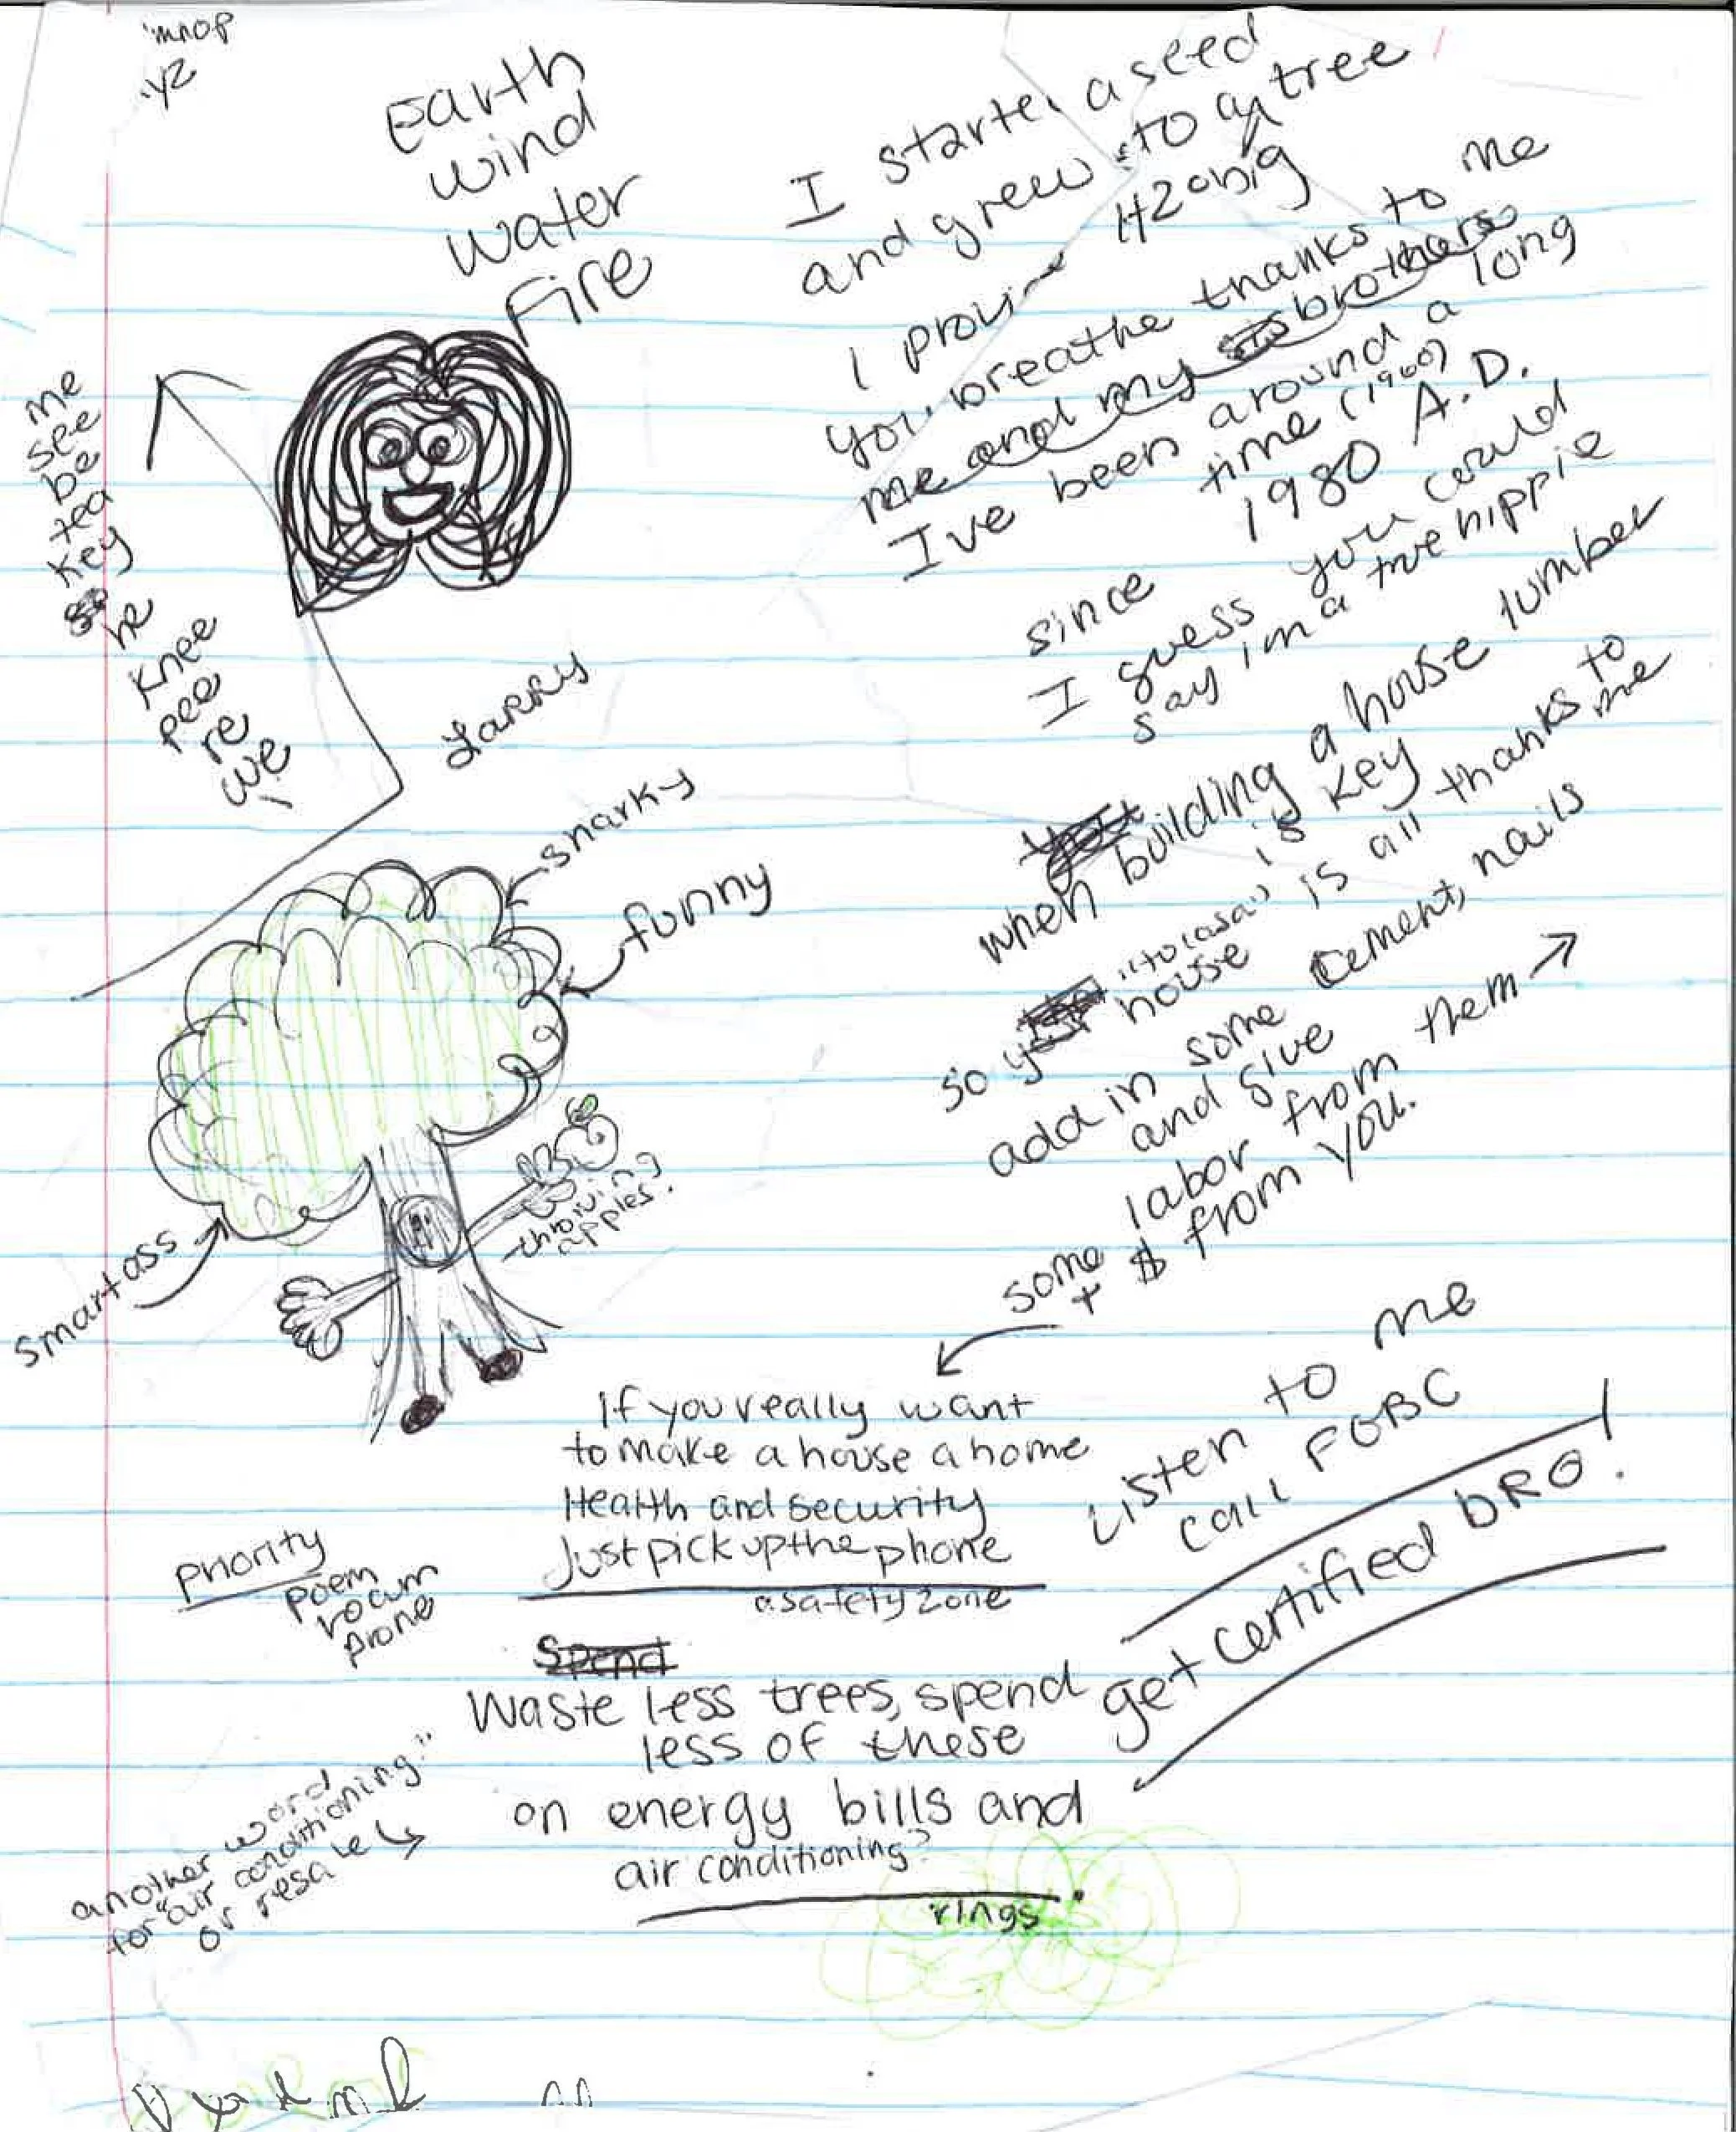 mnop
yz
Earth
wind
water
Fire
me
see
be
tea
key
he
knee
pee
re
we
Larry
snarky
funny
throwing
apples.
smartass
I starte a seed
and grew to a tree
H20 big
I provi
you breathe thanks to me
me and my brothers
I've been around a long
time (1960)
since 1980 A.D.
I guess you could
say im a tree hippie
when building a house lumber
is key
"to casa"
so your house is all thanks to
me
add in some cement, nails
and give them →
labor from
some + $ from you.
If you really want
to make a house a home
Health and security
Just pick up the phone
a safety zone
Listen to me
call FGBC
get certified bro!
Priority
poem
rocum
prone
Spend
Waste less trees, spend
less of these
on energy bills and
air conditioning?
rings
another word
for "air conditioning"
or resale